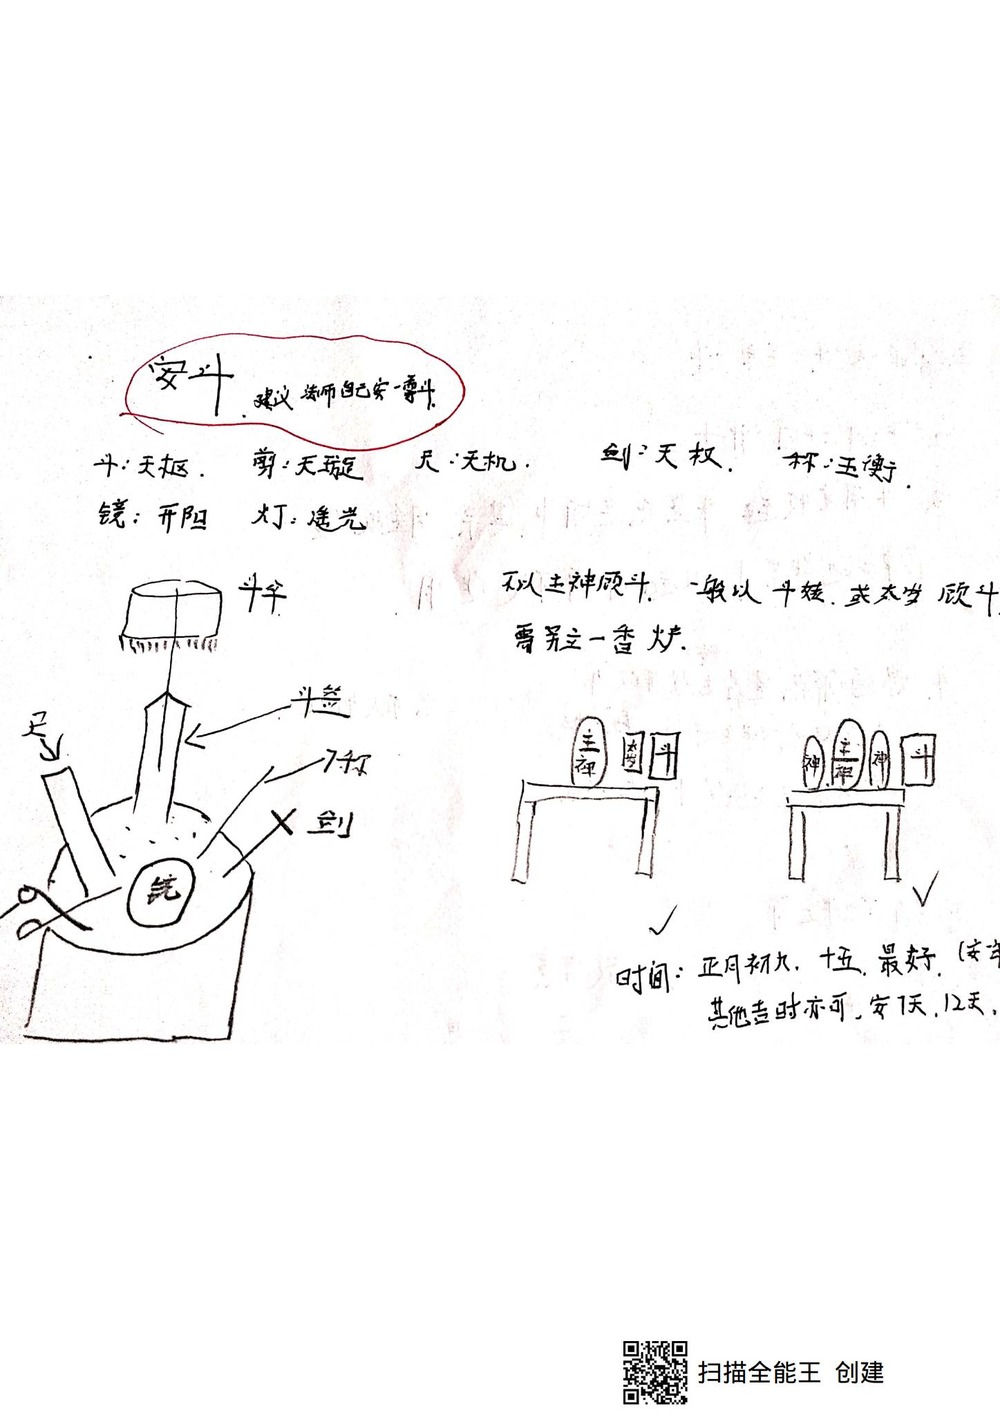 安斗
建议法师自己安一尊斗.
斗:天枢. 剪:天璇 尺:天机. 剑:天权. 称:玉衡.
镜:开阳 灯:遥光
斗伞
斗签
尺
称
剑
镜
不以主神顾斗. 一般以斗娃.或太岁顾斗.
需另立一香炉.
主神 太岁 斗
神 主神 神 斗
时间:正月初九.十五.最好.(安
其他吉时亦可.安7天.12天.
扫描全能王 创建